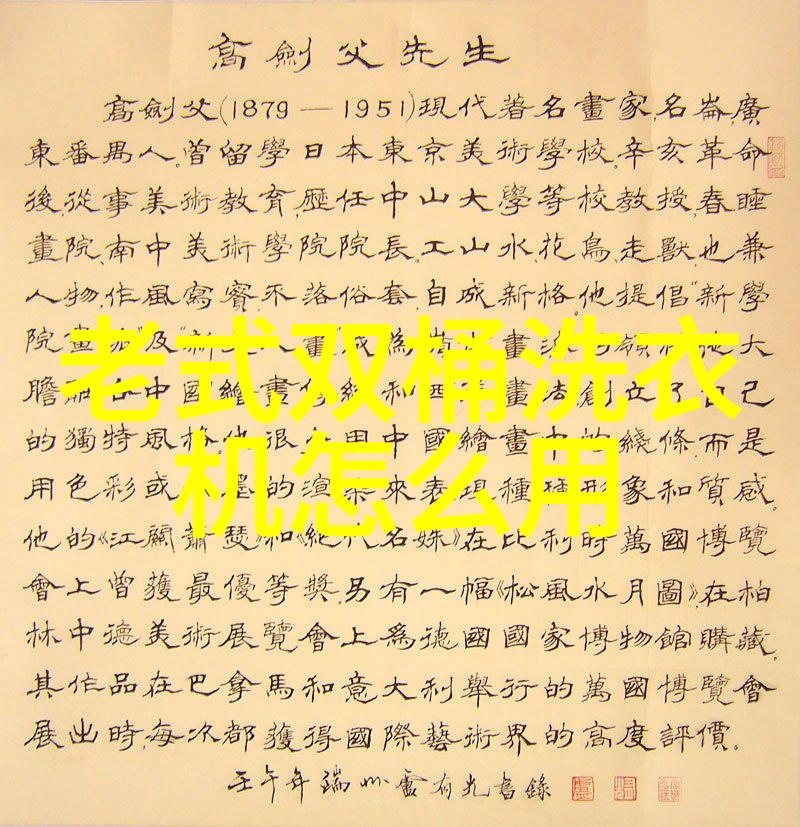 高劍父先生
高劍父(1879—1951)現代著名畫家,名崙,廣
東番禺人。曾留學日本東京美術學校。辛亥革命
後,從事美術教育,歷任中山大學等校教授,春睡
畫院、南中美術學院院長。工山水、花鳥、走獸,也兼
人物,作風寫實,不落俗套,自成新格。他提倡“新學
院畫 及“新 畫 成為嶺 畫 領 他大
膽 中國繪畫傳統和西 畫畫法,創立了自己
的獨特風格。他很 用中國繪畫中的綫條,而是
用色彩或 墨的渲染來表現種種形象和質感。
他的《江關蕭瑟》和《絕代名姝》在比利時萬國博覽
會上曾獲最優等獎,另有一幅《松風水月圖》,在柏
林中德美術展覽會上為德國國家博物館購藏。
其作品在巴拿馬和意大利舉行的萬國博覽會
展出時,每次都獲得國際藝術界的高度評價。
壬午年端州盧有光書錄
老式双桶洗衣
机怎么用